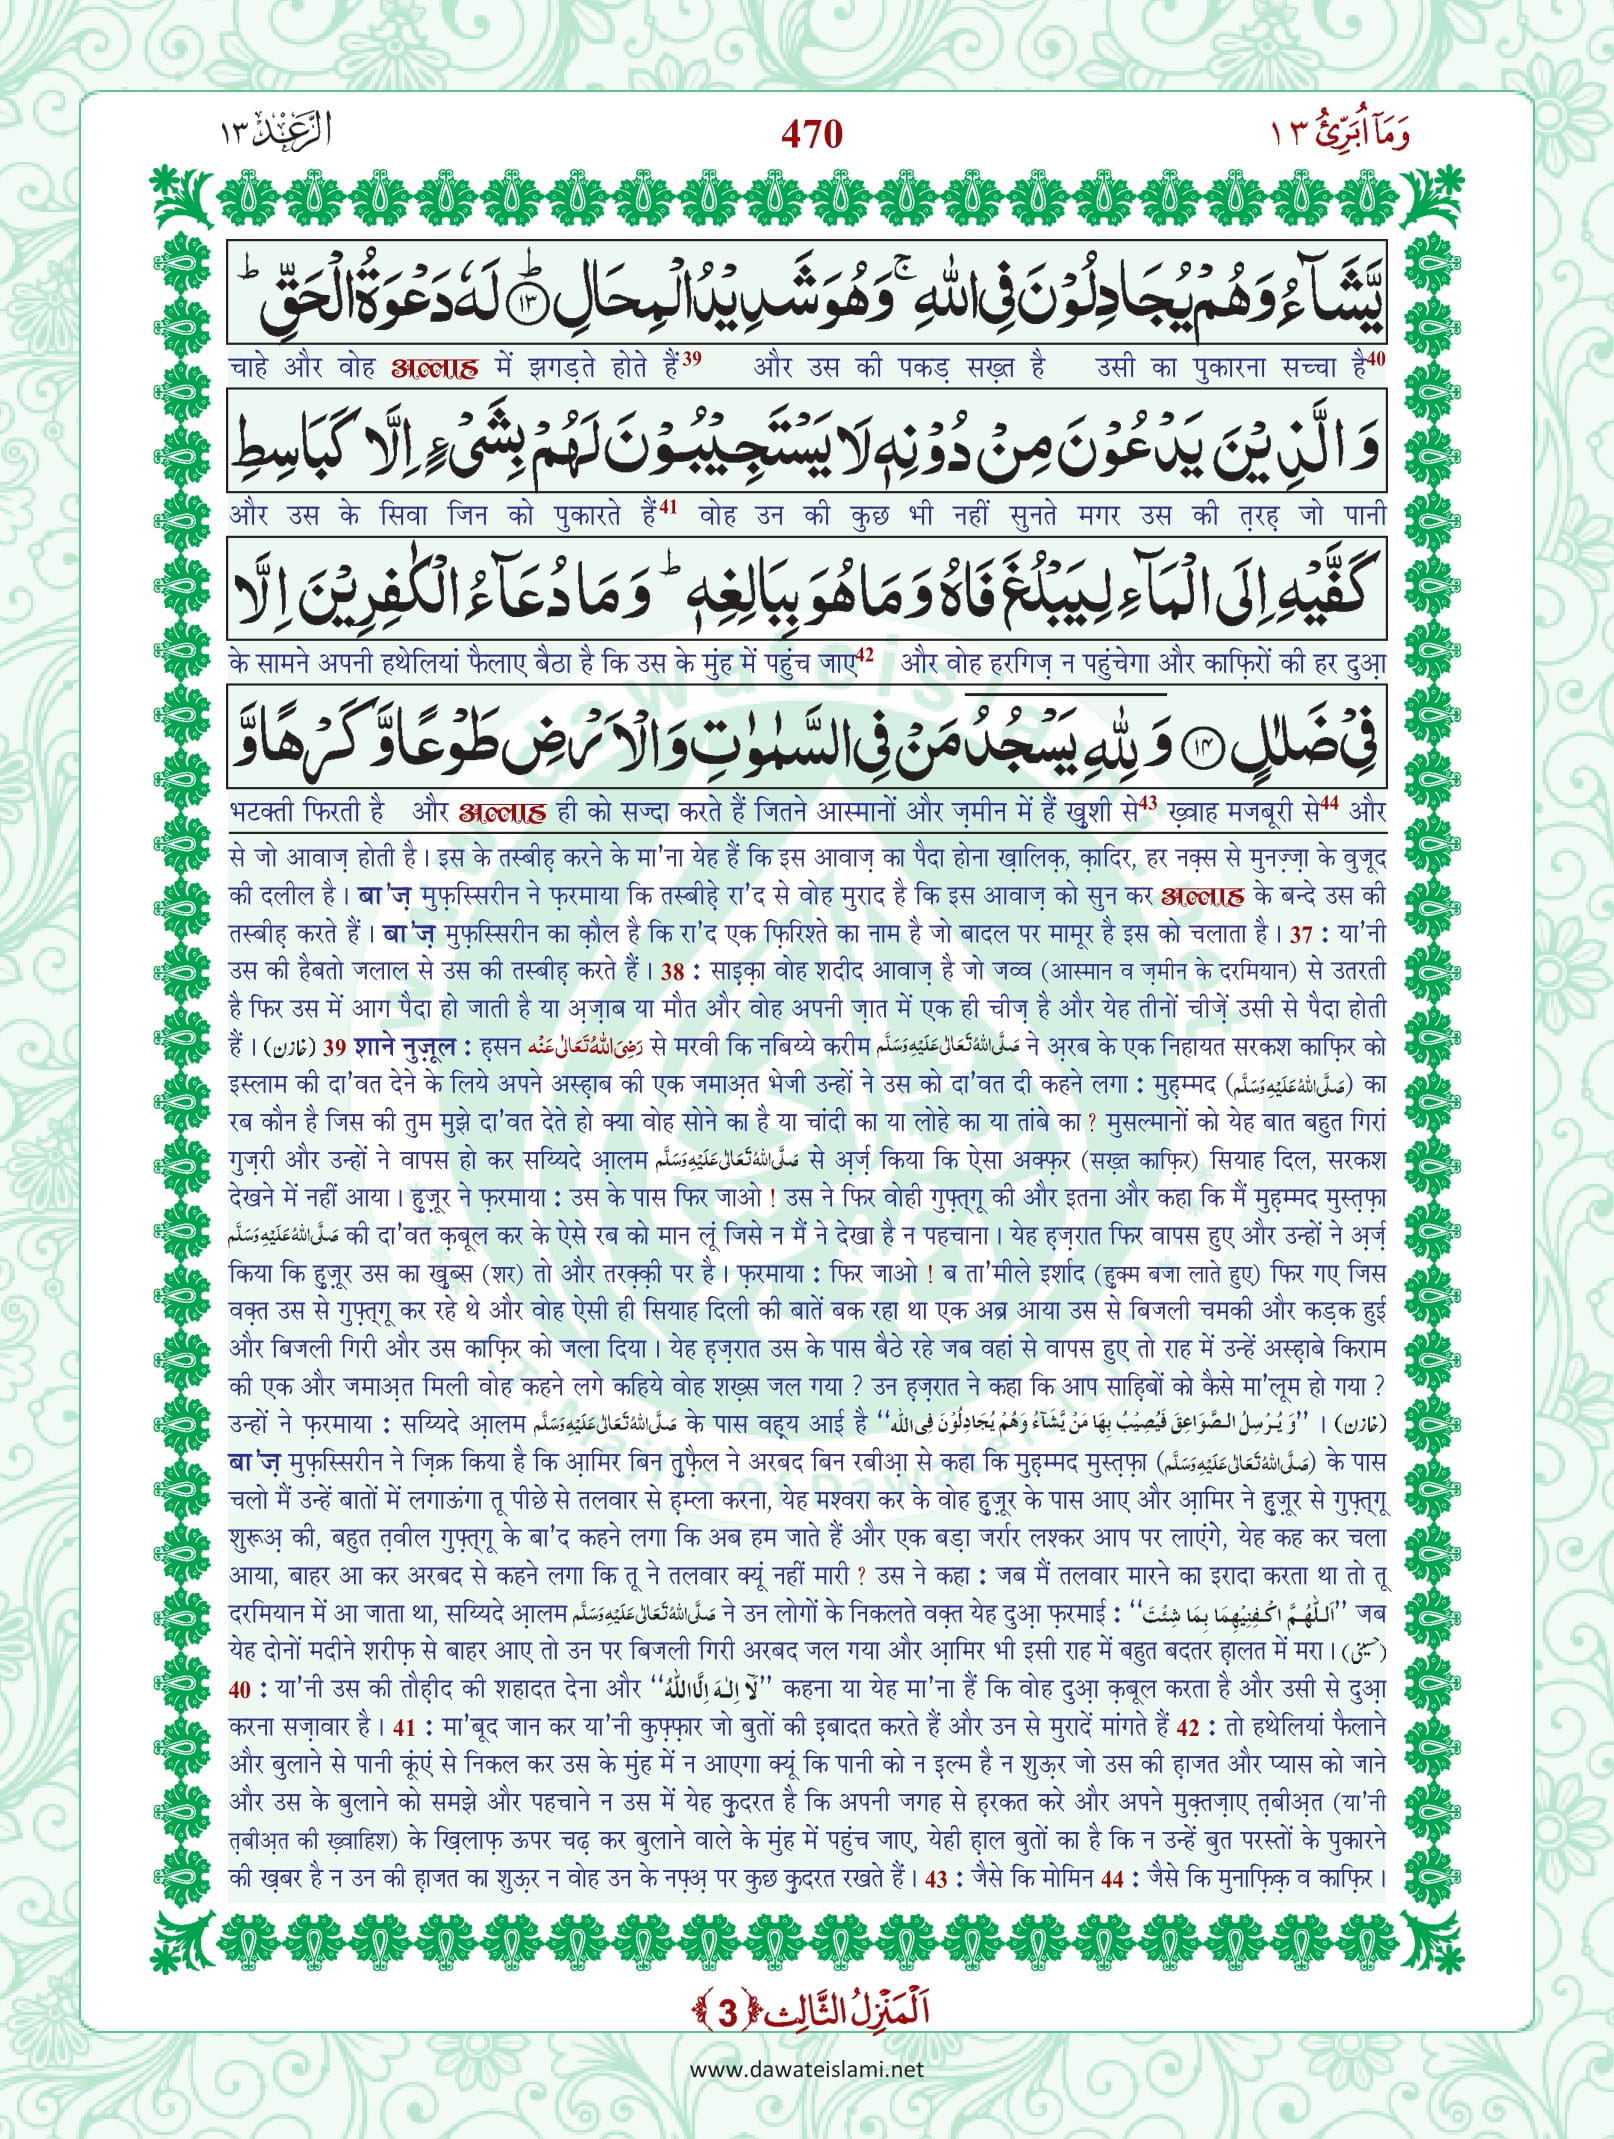 وَمَآ اُبَرِّئُ ١٣ 470 الرَّعْد ١٣
يَّشَآءُ وَهُمْ يُجَادِلُوْنَ فِي اللّٰهِ ۚ وَهُوَ شَدِيْدُ الْمِحَالِ ؕ﴿۱۳﴾ لَهٗ دَعْوَةُ الْحَقِّ ؕ
चाहे और वोह अल्लाह में झगड़ते होते हैं39 और उस की पकड़ सख़्त है उसी का पुकारना सच्चा है40
وَالَّذِيْنَ يَدْعُوْنَ مِنْ دُوْنِهٖ لَا يَسْتَجِيْبُوْنَ لَهُمْ بِشَيْءٍ اِلَّا كَبَاسِطِ
और उस के सिवा जिन को पुकारते हैं41 वोह उन की कुछ भी नहीं सुनते मगर उस की त़रह़ जो पानी
كَفَّيْهِ اِلَى الْمَآءِ لِيَبْلُغَ فَاهُ وَمَا هُوَ بِبَالِغِهٖ ؕ وَمَا دُعَآءُ الْكٰفِرِيْنَ اِلَّا
के सामने अपनी हथेलियां फैलाए बैठा है कि उस के मुंह में पहुंच जाए42 और वोह हरगिज़ न पहुंचेगा और काफ़िरों की हर दुआ़
فِيْ ضَلٰلٍ ﴿۱۴﴾ وَلِلّٰهِ يَسْجُدُ مَنْ فِي السَّمٰوٰتِ وَالْاَرْضِ طَوْعًا وَّكَرْهًا وَّ
भटकती फिरती है और अल्लाह ही को सज्दा करते हैं जितने आस्मानों और ज़मीन में हैं ख़ुशी से43 ख़्वाह मजबूरी से44 और
से जो आवाज़ होती है। इस के तस्बीह़ करने के मा'ना येह हैं कि इस आवाज़ का पैदा होना ख़ालिक़, क़ादिर, हर नक़्स से मुनज़्ज़ा के वुजूद
की दलील है। बा'ज़ मुफ़स्सिरीन ने फ़रमाया कि तस्बीह़े रा'द से वोह मुराद है कि इस आवाज़ को सुन कर अल्लाह के बन्दे उस की
तस्बीह़ करते हैं। बा'ज़ मुफ़स्सिरीन का क़ौल है कि रा'द एक फ़िरिश्ते का नाम है जो बादल पर मामूर है इस को चलाता है। 37 : या'नी
उस की हैबतो जलाल से उस की तस्बीह़ करते हैं। 38 : साइ़क़ा वोह शदीद आवाज़ है जो जव्व (आस्मान व ज़मीन के दरमियान) से उतरती
है फिर उस में आग पैदा हो जाती है या अ़ज़ाब या मौत और वोह अपनी ज़ात में एक ही चीज़ है और येह तीनों चीज़ें उसी से पैदा होती
हैं। (خازن) 39 शाने नुज़ूल : ह़सन رَضِىَ اللّٰهُ تَعَالٰى عَنْه से मरवी कि नबिय्ये करीम صَلَّى اللّٰهُ تَعَالٰى عَلَيْهِ وَسَلَّم ने अ़रब के एक निहायत सरकश काफ़िर को
इस्लाम की दा'वत देने के लिये अपने अस्ह़ाब की एक जमाअ़त भेजी उन्हों ने उस को दा'वत दी कहने लगा : मुह़म्मद (صَلَّى اللّٰهُ عَلَيْهِ وَسَلَّم) का
रब कौन है जिस की तुम मुझे दा'वत देते हो क्या वोह सोने का है या चांदी का या लोहे का या तांबे का ? मुसल्मानों को येह बात बहुत गिरां
गुज़री और उन्हों ने वापस हो कर सय्यिदे आ़लम صَلَّى اللّٰهُ تَعَالٰى عَلَيْهِ وَسَلَّم से अ़र्ज़ किया कि ऐसा अक्फ़र (सख़्त काफ़िर) सियाह दिल, सरकश
देखने में नहीं आया। हु़ज़ूर ने फ़रमाया : उस के पास फिर जाओ ! उस ने फिर वोही गुफ़्त्गू की और इतना और कहा कि मैं मुह़म्मद मुस्त़फ़ा
صَلَّى اللّٰهُ عَلَيْهِ وَسَلَّم की दा'वत क़बूल कर के ऐसे रब को मान लूं जिसे न मैं ने देखा है न पहचाना। येह ह़ज़रात फिर वापस हुए और उन्हों ने अ़र्ज़
किया कि हु़ज़ूर उस का ख़ुब्स (शर) तो और तरक़्क़ी पर है। फ़रमाया : फिर जाओ ! ब ता'मीले इर्शाद (हु़क्म बजा लाते हुए) फिर गए जिस
वक़्त उस से गुफ़्त्गू कर रहे थे और वोह ऐसी ही सियाह दिली की बातें बक रहा था एक अब्र आया उस से बिजली चमकी और कड़क हुई
और बिजली गिरी और उस काफ़िर को जला दिया। येह ह़ज़रात उस के पास बैठे रहे जब वहां से वापस हुए तो राह में उन्हें अस्ह़ाबे किराम
की एक और जमाअ़त मिली वोह कहने लगे कहिये वोह शख़्स जल गया ? उन ह़ज़रात ने कहा कि आप साह़िबों को कैसे मा'लूम हो गया ?
उन्हों ने फ़रमाया : सय्यिदे आ़लम صَلَّى اللّٰهُ تَعَالٰى عَلَيْهِ وَسَلَّم के पास वह़्य आई है "وَيُرْسِلُ الصَّوَاعِقَ فَيُصِيْبُ بِهَا مَنْ يَّشَآءُ وَهُمْ يُجَادِلُوْنَ فِى اللّٰه"। (خازن)
बा'ज़ मुफ़स्सिरीन ने ज़िक्र किया है कि आ़मिर बिन तु़फ़ैल ने अरबद बिन रबीआ़ से कहा कि मुह़म्मद मुस्त़फ़ा (صَلَّى اللّٰهُ تَعَالٰى عَلَيْهِ وَسَلَّم) के पास
चलो मैं उन्हें बातों में लगाऊंगा तू पीछे से तलवार से ह़म्ला करना, येह मश्वरा कर के वोह हु़ज़ूर के पास आए और आ़मिर ने हु़ज़ूर से गुफ़्त्गू
शुरूअ़ की, बहुत त़वील गुफ़्त्गू के बा'द कहने लगा कि अब हम जाते हैं और एक बड़ा जर्रार लश्कर आप पर लाएंगे, येह कह कर चला
आया, बाहर आ कर अरबद से कहने लगा कि तू ने तलवार क्यूं नहीं मारी ? उस ने कहा : जब मैं तलवार मारने का इरादा करता था तो तू
दरमियान में आ जाता था, सय्यिदे आ़लम صَلَّى اللّٰهُ تَعَالٰى عَلَيْهِ وَسَلَّم ने उन लोगों के निकलते वक़्त येह दुआ़ फ़रमाई : "اَللّٰهُمَّ اكْفِنِيْهِمَا بِمَا شِئْتَ" जब
येह दोनों मदीने शरीफ़ से बाहर आए तो उन पर बिजली गिरी अरबद जल गया और आ़मिर भी इसी राह में बहुत बदतर ह़ालत में मरा। (حسینی)
40 : या'नी उस की तौह़ीद की शहादत देना और "لَآ اِلٰهَ اِلَّا اللّٰهُ" कहना या येह मा'ना हैं कि वोह दुआ़ क़बूल करता है और उसी से दुआ़
करना सज़ावार है। 41 : मा'बूद जान कर या'नी कुफ़्फ़ार जो बुतों की इ़बादत करते हैं और उन से मुरादें मांगते हैं 42 : तो हथेलियां फैलाने
और बुलाने से पानी कूंएं से निकल कर उस के मुंह में न आएगा क्यूं कि पानी को न इ़ल्म है न शुऊ़र जो उस की ह़ाजत और प्यास को जाने
और उस के बुलाने को समझे और पहचाने न उस में येह क़ुदरत है कि अपनी जगह से ह़रकत करे और अपने मुक़्तज़ाए त़बीअ़त (या'नी
त़बीअ़त की ख़्वाहिश) के ख़िलाफ़ ऊपर चढ़ कर बुलाने वाले के मुंह में पहुंच जाए, येही ह़ाल बुतों का है कि न उन्हें बुत परस्तों के पुकारने
की ख़बर है न उन की ह़ाजत का शुऊ़र न वोह उन के नफ़्अ़ पर कुछ क़ुदरत रखते हैं। 43 : जैसे कि मोमिन 44 : जैसे कि मुनाफ़िक़ व काफ़िर।
اَلْمَنْزِلُ الثَّالِث ﴿3﴾
www.dawateislami.net